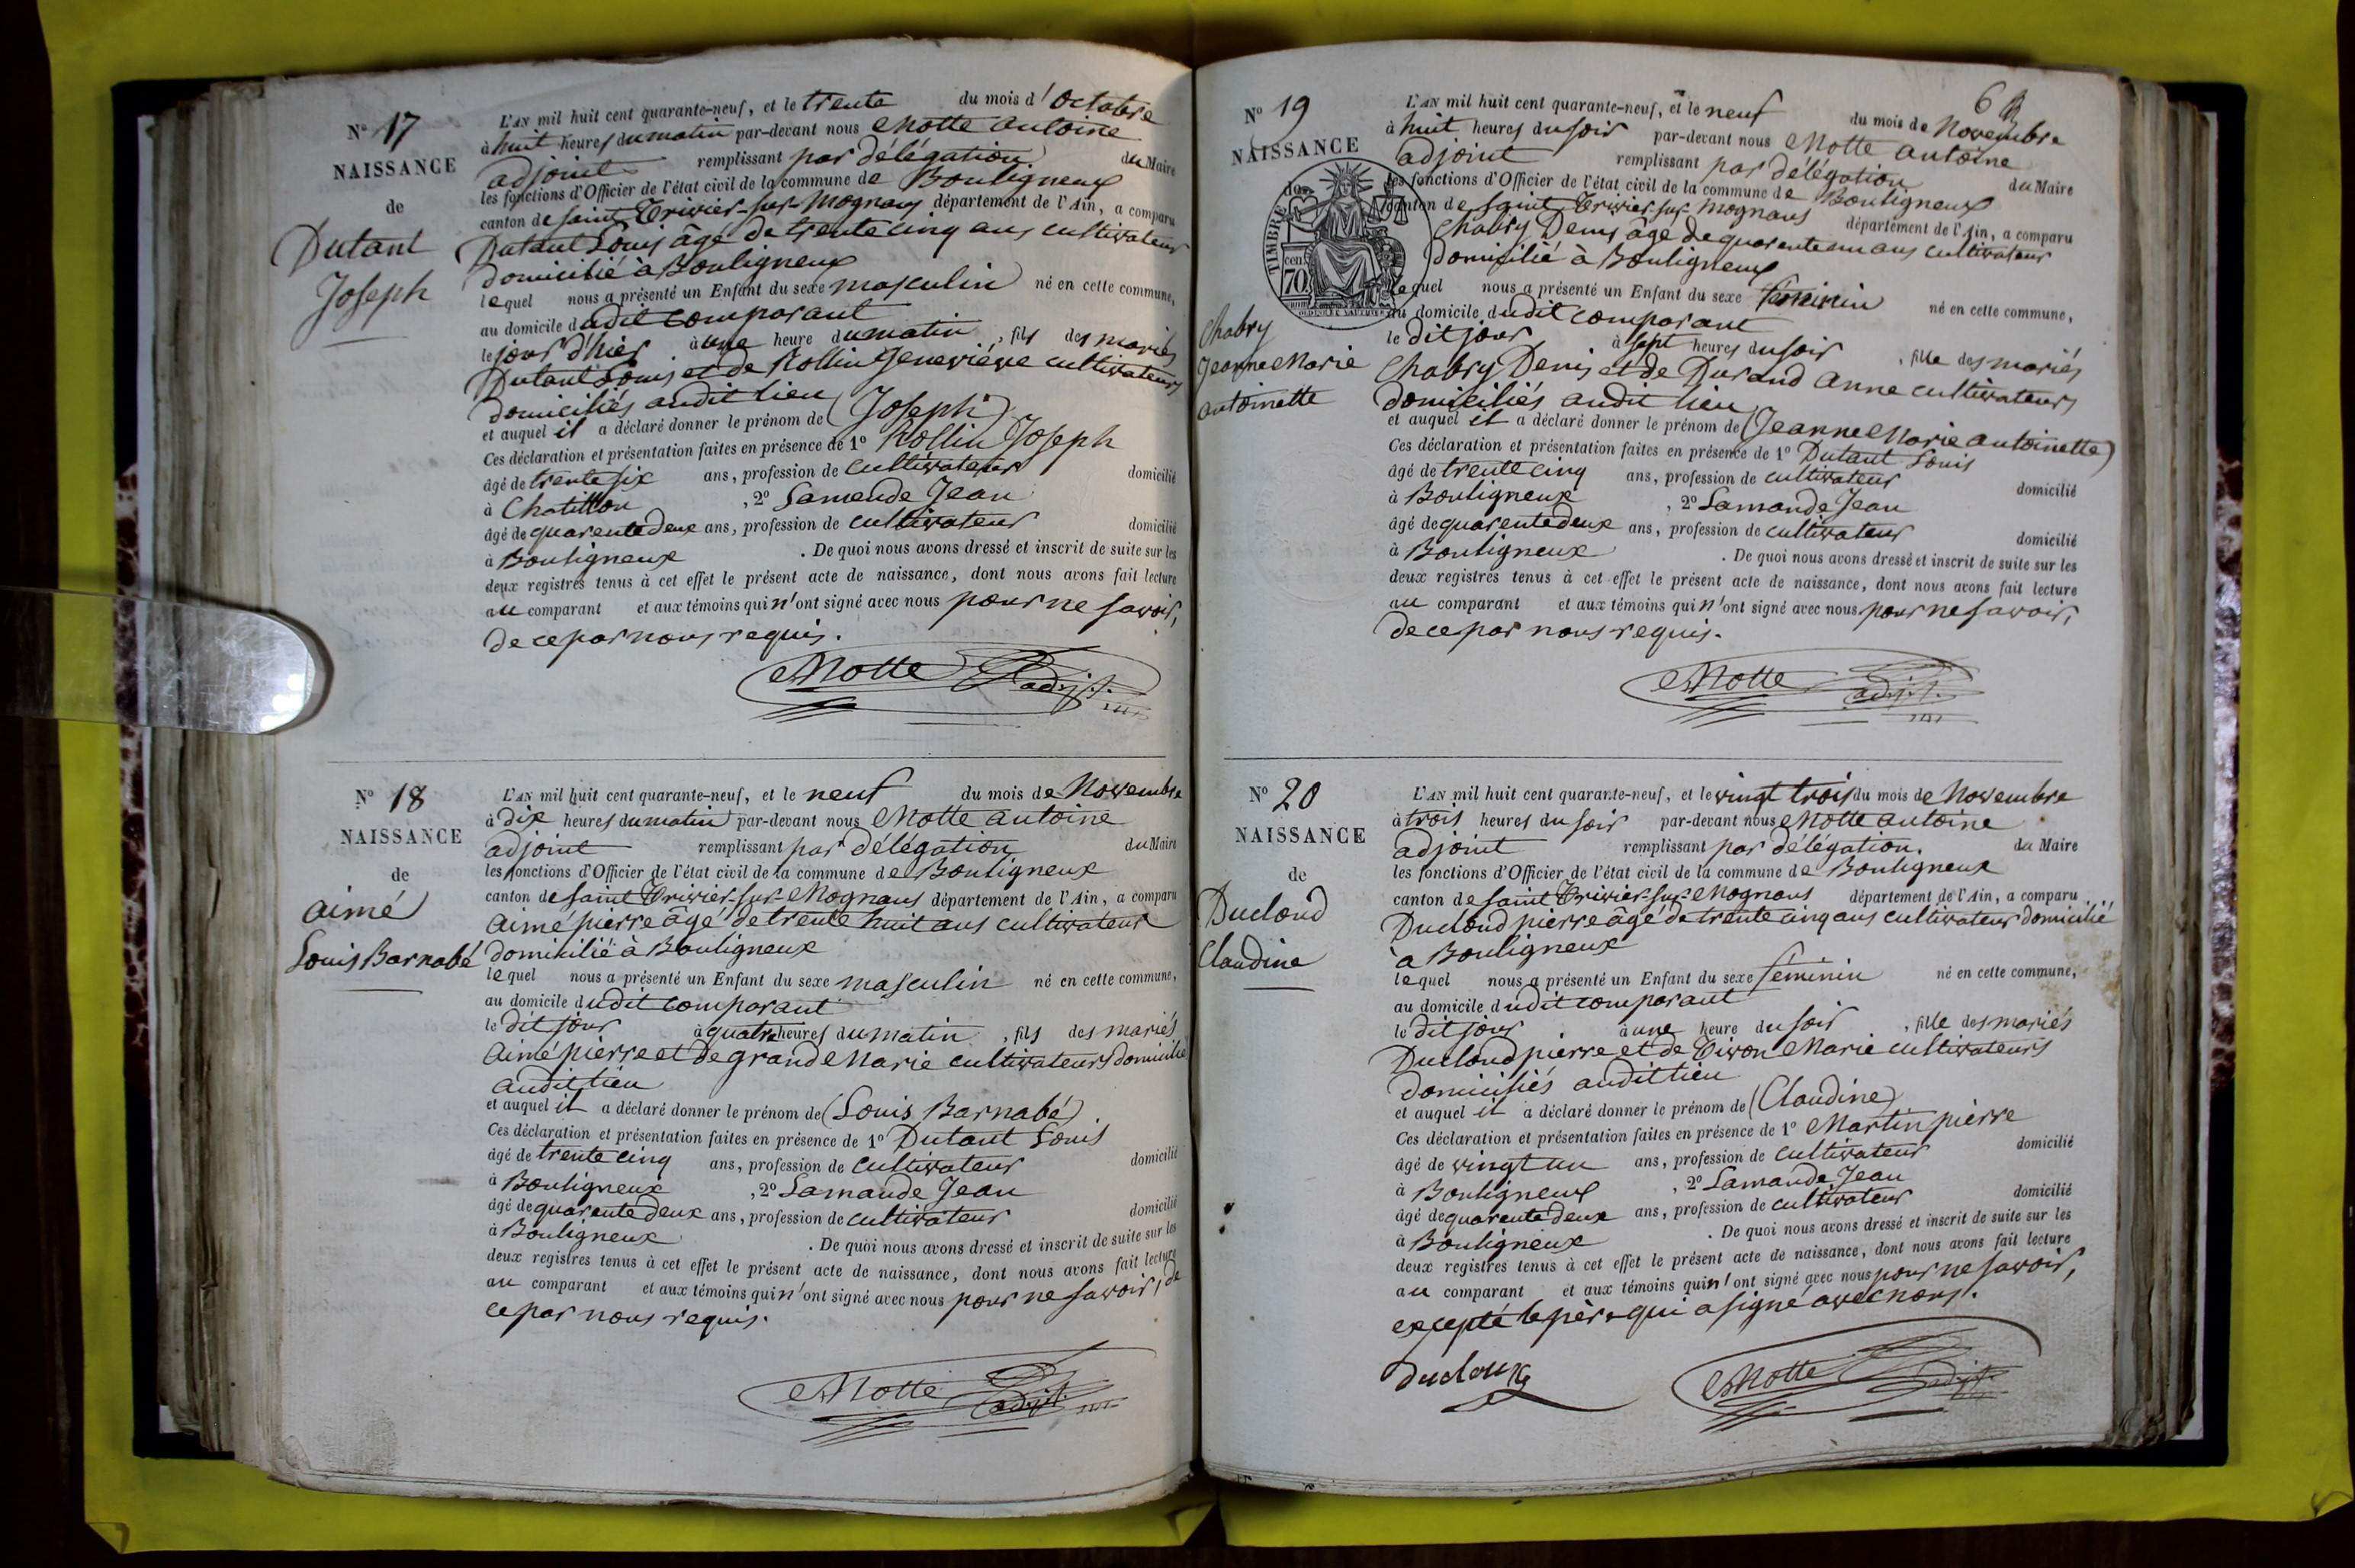 N° 17
NAISSANCE
de
Dutant
Joseph
L'AN mil huit cent quarante-neuf, et le trente du mois d'Octobre
à huit heures du matin par-devant nous Motte antoine
adjoint remplissant par délégation du Maire
les fonctions d'Officier de l'état civil de la commune de Bouligneux
canton de saint Trivier-sur-Mognans département de l'Ain, a comparu
Dutant Louis âgé de trente cinq ans cultivateur
domicilié à Bouligneux
lequel nous a présenté un Enfant du sexe masculin né en cette commune,
au domicile dudit comparant
le jour d'hier à une heure du matin, fils des mariés
Dutant Louis et de Rollin Geneviève cultivateurs
domiciliés audit lieu
et auquel il a déclaré donner le prénom de (Joseph)
Ces déclaration et présentation faites en présence de 1° Rollin Joseph
âgé de trente six ans, profession de cultivateur domicilié
à Chatillon, 2° Lamende Jean
âgé de quarente deux ans, profession de cultivateur domicilié
à Bouligneux. De quoi nous avons dressé et inscrit de suite sur les
deux registres tenus à cet effet le présent acte de naissance, dont nous avons fait lecture
au comparant et aux témoins qui n'ont signé avec nous pour ne savoir,
de ce par nous requis.
Motte adjt.
N° 18
NAISSANCE
de
aimé
Louis Barnabé
L'AN mil huit cent quarante-neuf, et le neuf du mois de Novembre
à dix heures du matin par-devant nous Motte antoine
adjoint remplissant par délégation du Maire
les fonctions d'Officier de l'état civil de la commune de Bouligneux
canton de saint Trivier-sur-Mognans département de l'Ain, a comparu
aimé pierre âgé de trente huit ans cultivateur
domicilié à Bouligneux
lequel nous a présenté un Enfant du sexe masculin né en cette commune,
au domicile dudit comparant
le dit jour à quatre heures du matin, fils des mariés
aimé pierre et de grand Marie cultivateurs domicilié
audit lieu
et auquel il a déclaré donner le prénom de (Louis Barnabé)
Ces déclaration et présentation faites en présence de 1° Dutant Louis
âgé de trente cinq ans, profession de cultivateur domicilié
à Bouligneux, 2° Lamande Jean
âgé de quarente deux ans, profession de cultivateur domicilié
à Bouligneux. De quoi nous avons dressé et inscrit de suite sur les
deux registres tenus à cet effet le présent acte de naissance, dont nous avons fait lecture
au comparant et aux témoins qui n'ont signé avec nous pour ne savoir, de
ce par nous requis.
Motte adjt.
6
N° 19
NAISSANCE
de
TIMBRE
cen
70
Chabry
Jeanne Marie
antoinette
L'AN mil huit cent quarante-neuf, et le neuf du mois de Novembre
à huit heures du soir par-devant nous Motte antoine
adjoint remplissant par délégation du Maire
les fonctions d'Officier de l'état civil de la commune de Bouligneux
canton de saint Trivier-sur-Mognans département de l'Ain, a comparu
Chabry Denis âgé de quarente un ans cultivateur
domicilié à Bouligneux
lequel nous a présenté un Enfant du sexe féminin né en cette commune,
au domicile dudit comparant
le dit jour à sept heures du soir, fille des mariés
Chabry Denis et de Durand anne cultivateurs
domiciliés audit lieu
et auquel il a déclaré donner le prénom de (Jeanne Marie antoinette)
Ces déclaration et présentation faites en présence de 1° Dutant Louis
âgé de trente cinq ans, profession de cultivateur domicilié
à Bouligneux, 2° Lamande Jean
âgé de quarente deux ans, profession de cultivateur domicilié
à Bouligneux. De quoi nous avons dressé et inscrit de suite sur les
deux registres tenus à cet effet le présent acte de naissance, dont nous avons fait lecture
au comparant et aux témoins qui n'ont signé avec nous pour ne savoir,
de ce par nous requis.
Motte adjt.
N° 20
NAISSANCE
de
Duclond
Claudine
L'AN mil huit cent quarante-neuf, et le vingt trois du mois de Novembre
à trois heures du soir par-devant nous Motte antoine
adjoint remplissant par délégation. du Maire
les fonctions d'Officier de l'état civil de la commune de Bouligneux
canton de saint Trivier-sur-Mognans département de l'Ain, a comparu
Duclond pierre âgé de trente cinq ans cultivateur domicilié
à Bouligneux
lequel nous a présenté un Enfant du sexe féminin né en cette commune,
au domicile dudit comparant
le dit jour à une heure du soir, fille des mariés
Duclond pierre et de Tivon Marie cultivateurs
domiciliés audit lieu
et auquel il a déclaré donner le prénom de (Claudine)
Ces déclaration et présentation faites en présence de 1° Martin pierre
âgé de vingt un ans, profession de cultivateur domicilié
à Bouligneux, 2° Lamande Jean
âgé de quarente deux ans, profession de cultivateur domicilié
à Bouligneux. De quoi nous avons dressé et inscrit de suite sur les
deux registres tenus à cet effet le présent acte de naissance, dont nous avons fait lecture
au comparant et aux témoins qui n'ont signé avec nous pour ne savoir,
excepté le père qui a signé avec nous.
ducloux
Motte adjt.